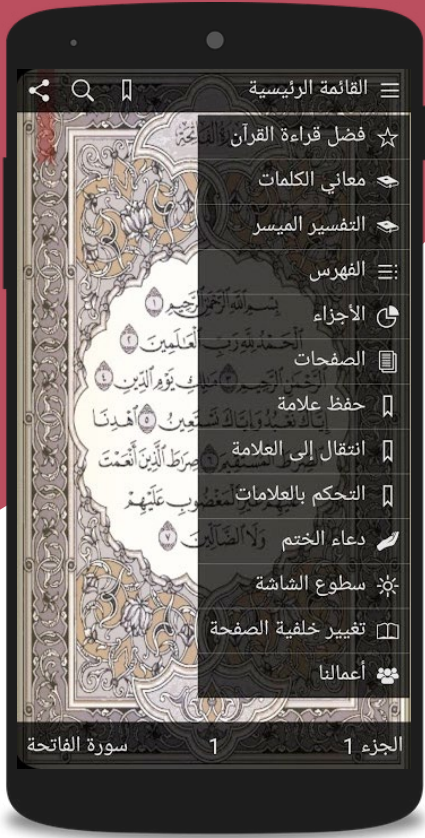 القائمة الرئيسية
فضل قراءة القرآن
معاني الكلمات
التفسير الميسر
الفهرس
الأجزاء
الصفحات
حفظ علامة
انتقال إلى العلامة
التحكم بالعلامات
دعاء الختم
سطوع الشاشة
تغيير خلفية الصفحة
أعمالنا
بِسْمِ ٱللَّهِ ٱلرَّحْمَٰنِ ٱلرَّحِيمِ ١
ٱلْحَمْدُ لِلَّهِ رَبِّ ٱلْعَٰلَمِينَ ٢
ٱلرَّحْمَٰنِ ٱلرَّحِيمِ ٣ مَٰلِكِ يَوْمِ ٱلدِّينِ ٤
إِيَّاكَ نَعْبُدُ وَإِيَّاكَ نَسْتَعِينُ ٥ ٱهْدِنَا
ٱلصِّرَٰطَ ٱلْمُسْتَقِيمَ ٦ صِرَٰطَ ٱلَّذِينَ أَنْعَمْتَ
عَلَيْهِمْ غَيْرِ ٱلْمَغْضُوبِ عَلَيْهِمْ
وَلَا ٱلضَّآلِّينَ ٧
الجزء 1
1
سورة الفاتحة